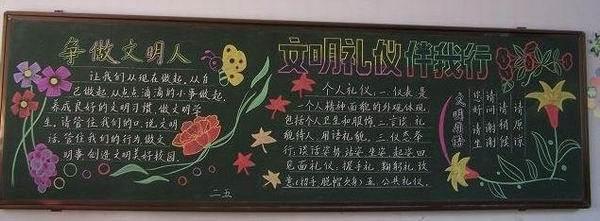 争做文明人
让我们从现在做起,从自
己做起,从点点滴滴的小事做起,
养成良好的文明习惯,做文明学
生,请管住我们的口,说文明
话,管住我们的行为,做文
明事,创造文明美好校园。
文明礼仪伴我行
个人礼仪,一、仪表是
一个人精神面貌的外观体现,
包括个人卫生和服饰,二、言谈、礼
貌待人,用语礼貌。三、仪态举
行:谈话姿势、站姿、坐姿、起姿四、
见面礼仪:握手礼、鞠躬礼、致
意(招手、脱帽、点头)五、公共礼仪。
文明用语
您好 请坐
请问 谢谢
请 请稍候
请原谅
二五